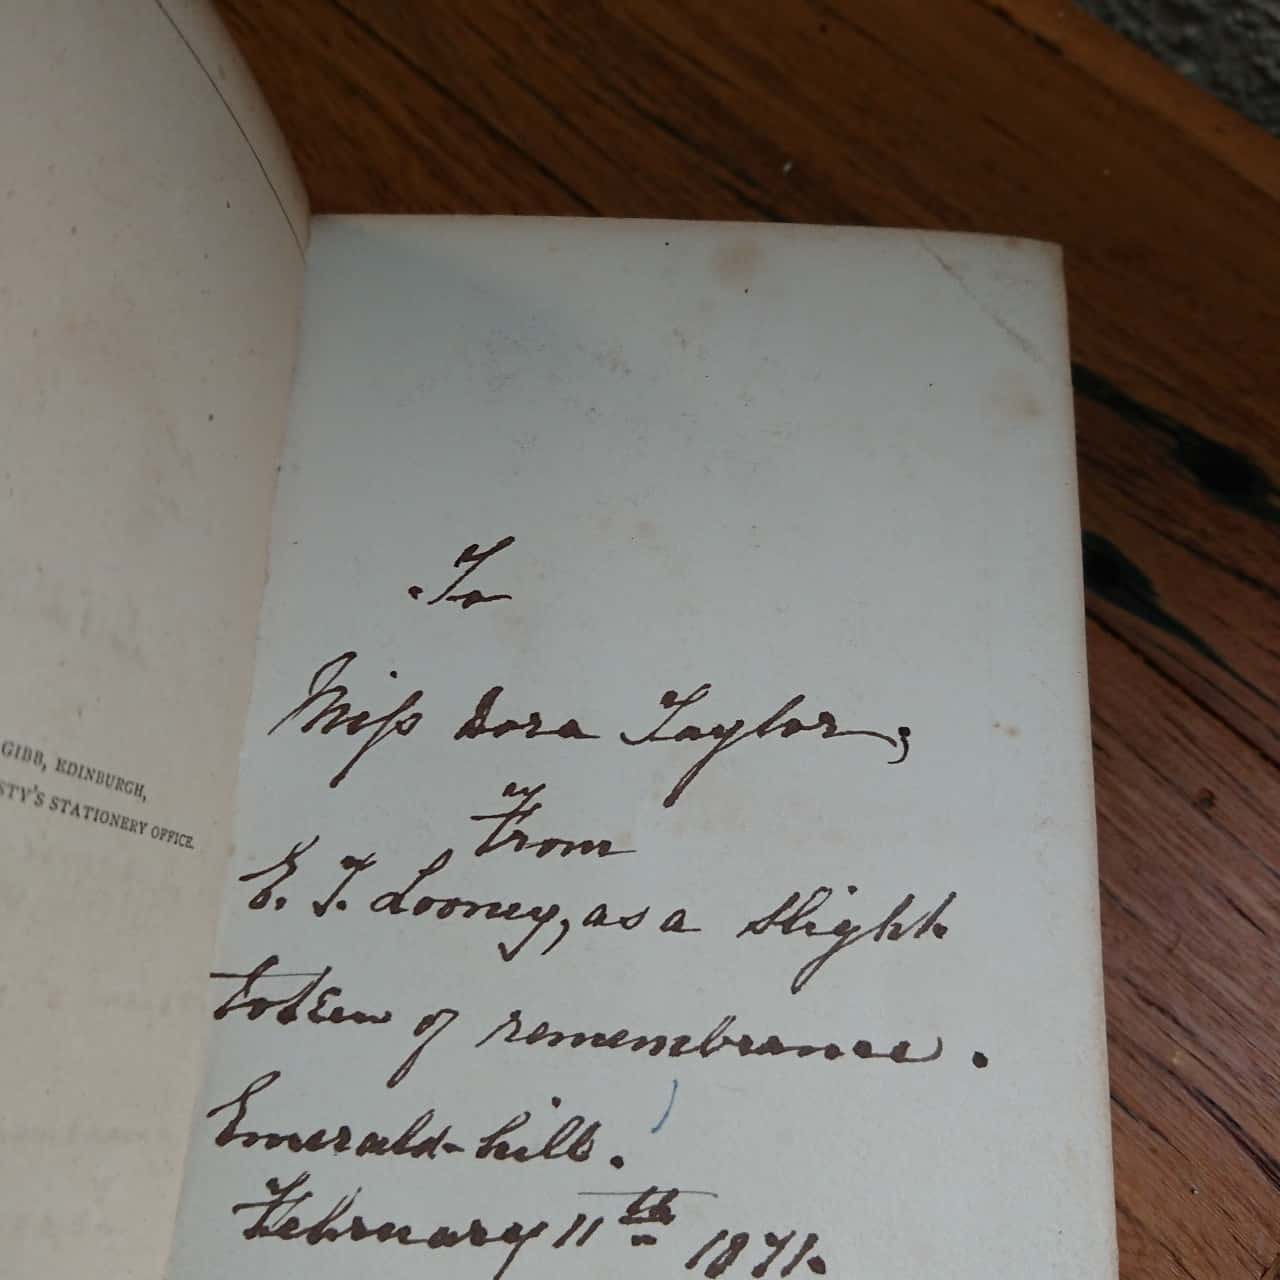 GIBB, EDINBURGH,
STY'S STATIONERY OFFICE.
To
Miss Dora Taylor,
From
E. T. Looney, as a slight
token of remembrance.
Emerald-hill.
February 11th 1871.